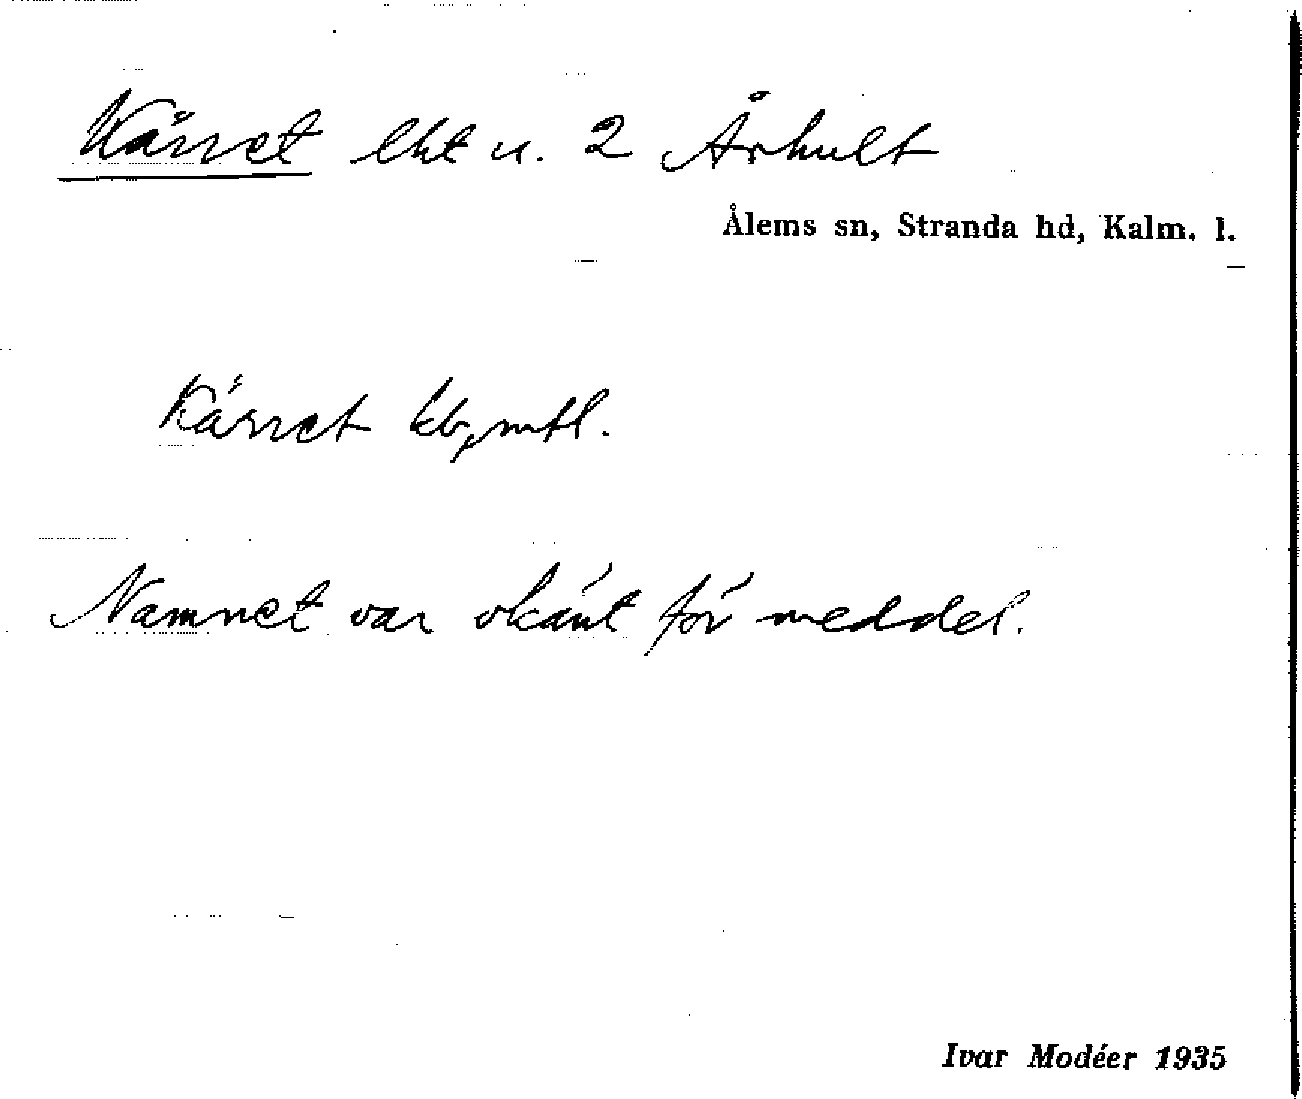 Kärret lht u. 2 Århult
Ålems sn, Stranda hd, Kalm. l.
Kärret kb, mtl.
Namnet var okänt för meddel.
Ivar Modéer 1935